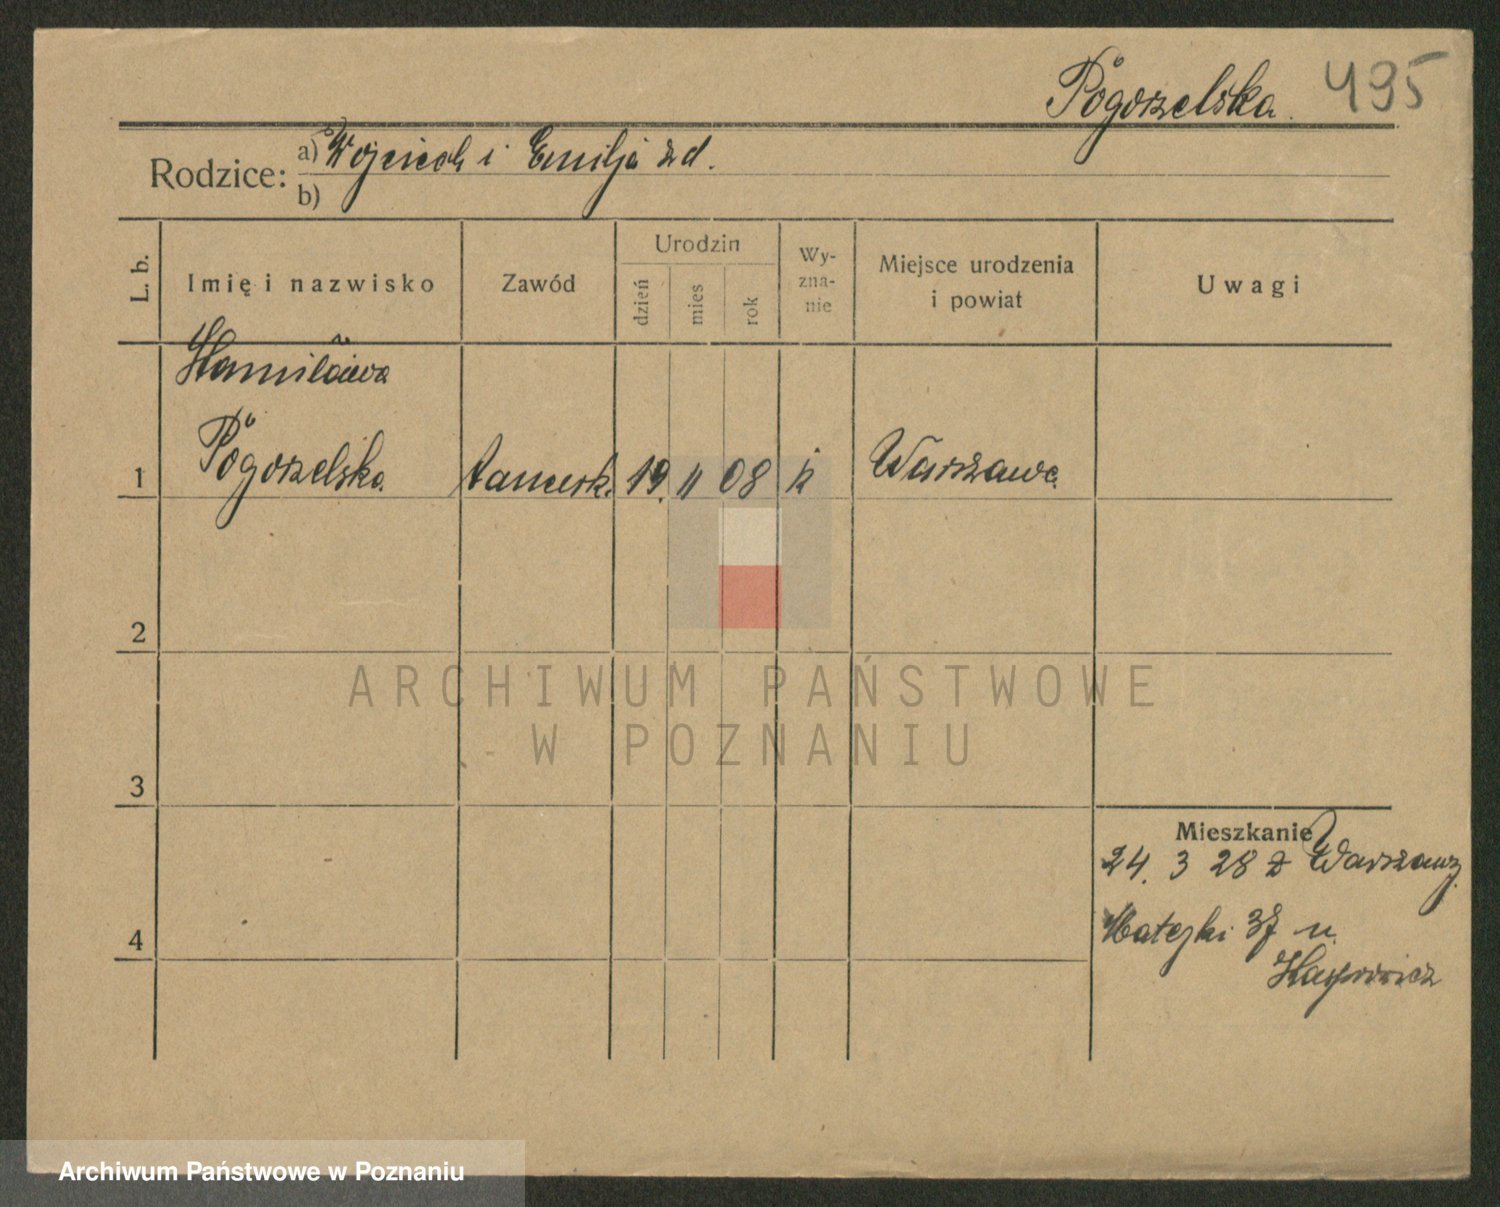 Pogorzelska. 495
Rodzice: a) Wojciech i Emilja zd.
b)
L. b. Imię i nazwisko Zawód Urodzin dzień mies rok Wy-zna-nie Miejsce urodzenia i powiat Uwagi
Stanisława
1 Pogorzelska tancerk. 19. 11 08 k Warszawa
2
ARCHIWUM PAŃSTWOWE
W POZNANIU
3
Mieszkanie
24. 3 28 z Warszawy
4 Matejki 37 u
Archiwum Państwowe w Poznaniu